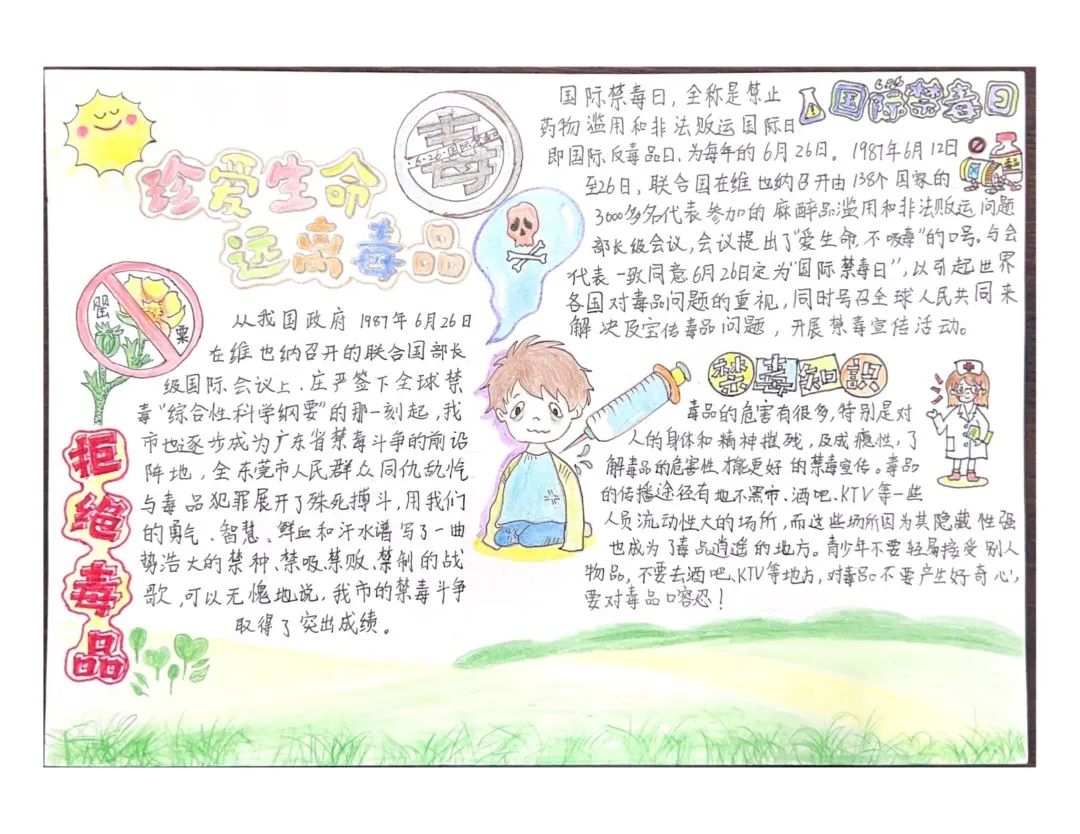 珍爱生命
远离毒品
毒
6·26·国际禁毒日
罂粟
拒绝毒品
从我国政府1987年6月26日
在维也纳召开的联合国部长
级国际会议上，庄严签下全球禁
毒“综合性科学纲要”的那一刻起，我
市也逐步成为广东省禁毒斗争的前沿
阵地，全东莞市人民群众同仇敌忾
与毒品犯罪展开了殊死搏斗，用我们
的勇气、智慧、鲜血和汗水谱写了一曲
势浩大的禁种、禁吸、禁败、禁制的战
歌，可以无愧地说，我市的禁毒斗争
取得了突出成绩。
国际禁毒日
国际禁毒日，全称是禁止
药物滥用和非法贩运国际日
即国际反毒品日，为每年的6月26日。1987年6月12日
至26日，联合国在维也纳召开由138个国家的
3000多名代表参加的麻醉品滥用和非法贩运问题
部长级会议，会议提出了“爱生命，不吸毒”的口号。与会
代表一致同意6月26日定为“国际禁毒日”，以引起世界
各国对毒品问题的重视，同时号召全球人民共同来
解决及宝传毒品问题，开展禁毒宣传活动。
毒品
禁毒知识
毒品的危害有很多，特别是对
人的身体和精神摧残，及成瘾性，了
解毒品的危害性才能更好的禁毒宣传。毒品
的传播途径有地下黑市、酒吧、KTV等一些
人员流动性大的场所，而这些场所因为其隐藏性强
也成为了毒品逍遥的地方。青少年不要轻易接受别人
物品，不要去酒吧、KTV等地方，对毒品不要产生好奇心，
要对毒品口容忍！